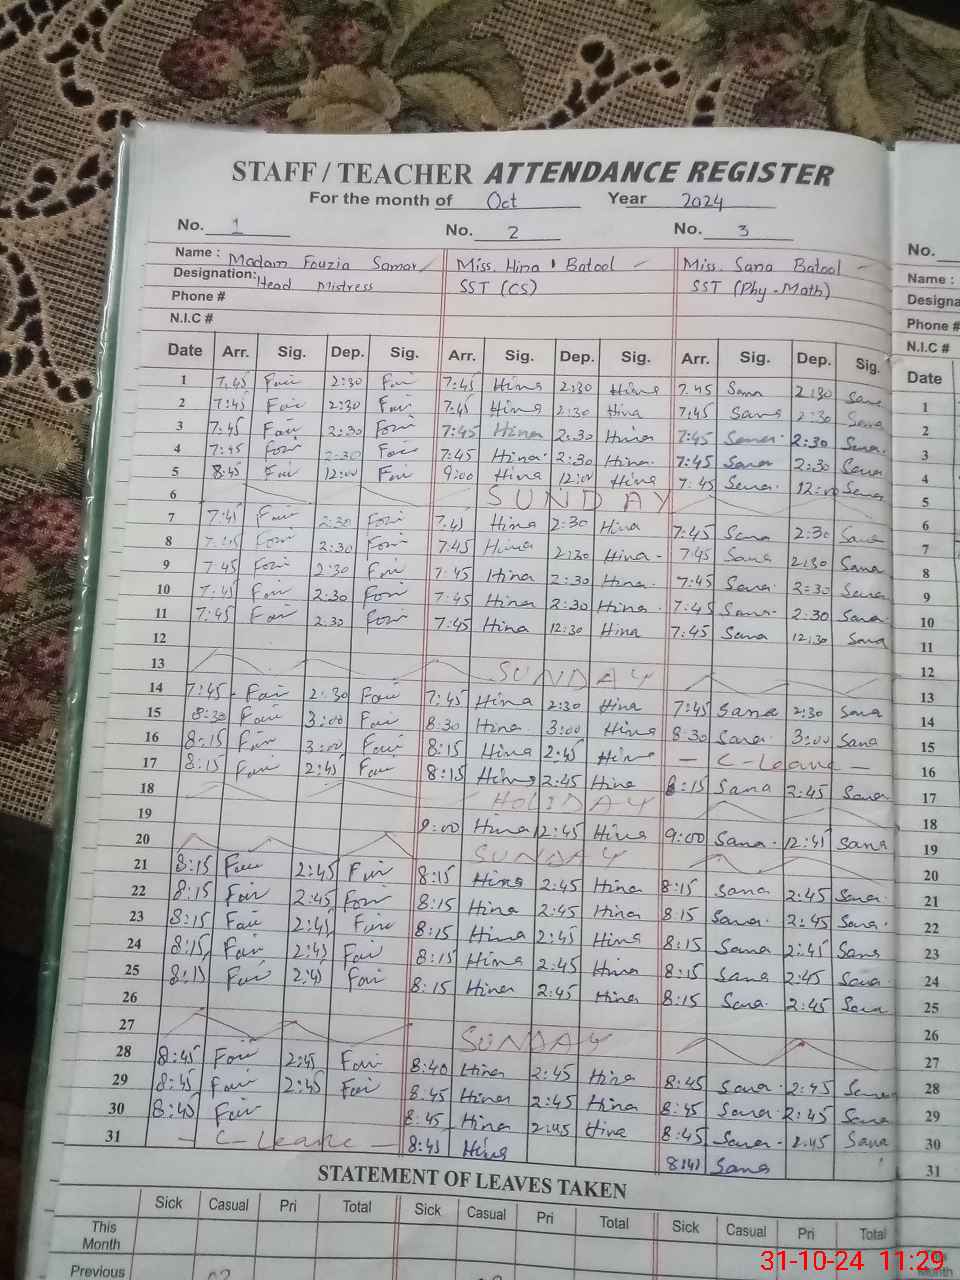 STAFF / TEACHER ATTENDANCE REGISTER
For the month of Oct Year 2024
No. 1 No. 2 No. 3 No.
Name : Madam Fouzia Samar Miss. Hina Batool Miss. Sana Batool Name :
Designation: Head Mistress SST (CS) SST (Phy-Math) Designa
Phone # Phone #
N.I.C # N.I.C #
Date Arr. Sig. Dep. Sig. Arr. Sig. Dep. Sig. Arr. Sig. Dep. Sig. Date
1 7:45 2:30 7:45 Hina 2:30 Hina 7:45 Sana 2:30 Sana 1
2 7:45 2:30 7:45 Hina 2:30 Hina 7:45 Sana 2:30 Sana 2
3 7:45 2:30 7:45 Hina 2:30 Hina 7:45 Sana 2:30 Sana 3
4 7:45 2:30 7:45 Hina 2:30 Hina 7:45 Sana 2:30 Sana 4
5 8:45 12:00 9:00 Hina 12:00 Hina 7:45 Sana 12:00 Sana 5
6 SUNDAY 6
7 7:45 2:30 7:45 Hina 2:30 Hina 7:45 Sana 2:30 Sana 7
8 7:45 2:30 7:45 Hina 2:30 Hina 7:45 Sana 2:30 Sana 8
9 7:45 2:30 7:45 Hina 2:30 Hina 7:45 Sana 2:30 Sana 9
10 7:45 2:30 7:45 Hina 2:30 Hina 7:45 Sana 2:30 Sana 10
11 7:45 2:30 7:45 Hina 12:30 Hina 7:45 Sana 12:30 Sana 11
12 12
13 SUNDAY 13
14 7:45 2:30 7:45 Hina 2:30 Hina 7:45 Sana 2:30 Sana 14
15 8:30 3:00 8:30 Hina 3:00 Hina 8:30 Sana 3:00 Sana 15
16 8:15 3:00 8:15 Hina 2:45 Hina - C-Leave - 16
17 8:15 2:45 8:15 Hina 2:45 Hina 8:15 Sana 2:45 Sana 17
18 HOLIDAY 18
19 9:00 Hina 12:45 Hina 9:00 Sana 12:45 Sana 19
20 SUNDAY 20
21 8:15 2:45 8:15 Hina 2:45 Hina 8:15 Sana 2:45 Sana 21
22 8:15 2:45 8:15 Hina 2:45 Hina 8:15 Sana 2:45 Sana 22
23 8:15 2:45 8:15 Hina 2:45 Hina 8:15 Sana 2:45 Sana 23
24 8:15 2:45 8:15 Hina 2:45 Hina 8:15 Sana 2:45 Sana 24
25 8:15 2:45 8:15 Hina 2:45 Hina 8:15 Sana 2:45 Sana 25
26 26
27 SUNDAY 27
28 8:45 2:45 8:40 Hina 2:45 Hina 8:45 Sana 2:45 Sana 28
29 8:45 2:45 8:45 Hina 2:45 Hina 8:45 Sana 2:45 Sana 29
30 8:45 8:45 Hina 2:45 Hina 8:45 Sana 2:45 Sana 30
31 - C-Leave - 8:45 Hina 8:45 Sana 31
STATEMENT OF LEAVES TAKEN
Sick Casual Pri Total Sick Casual Pri Total Sick Casual Pri Total
This Month
Previous
31-10-24 11:29